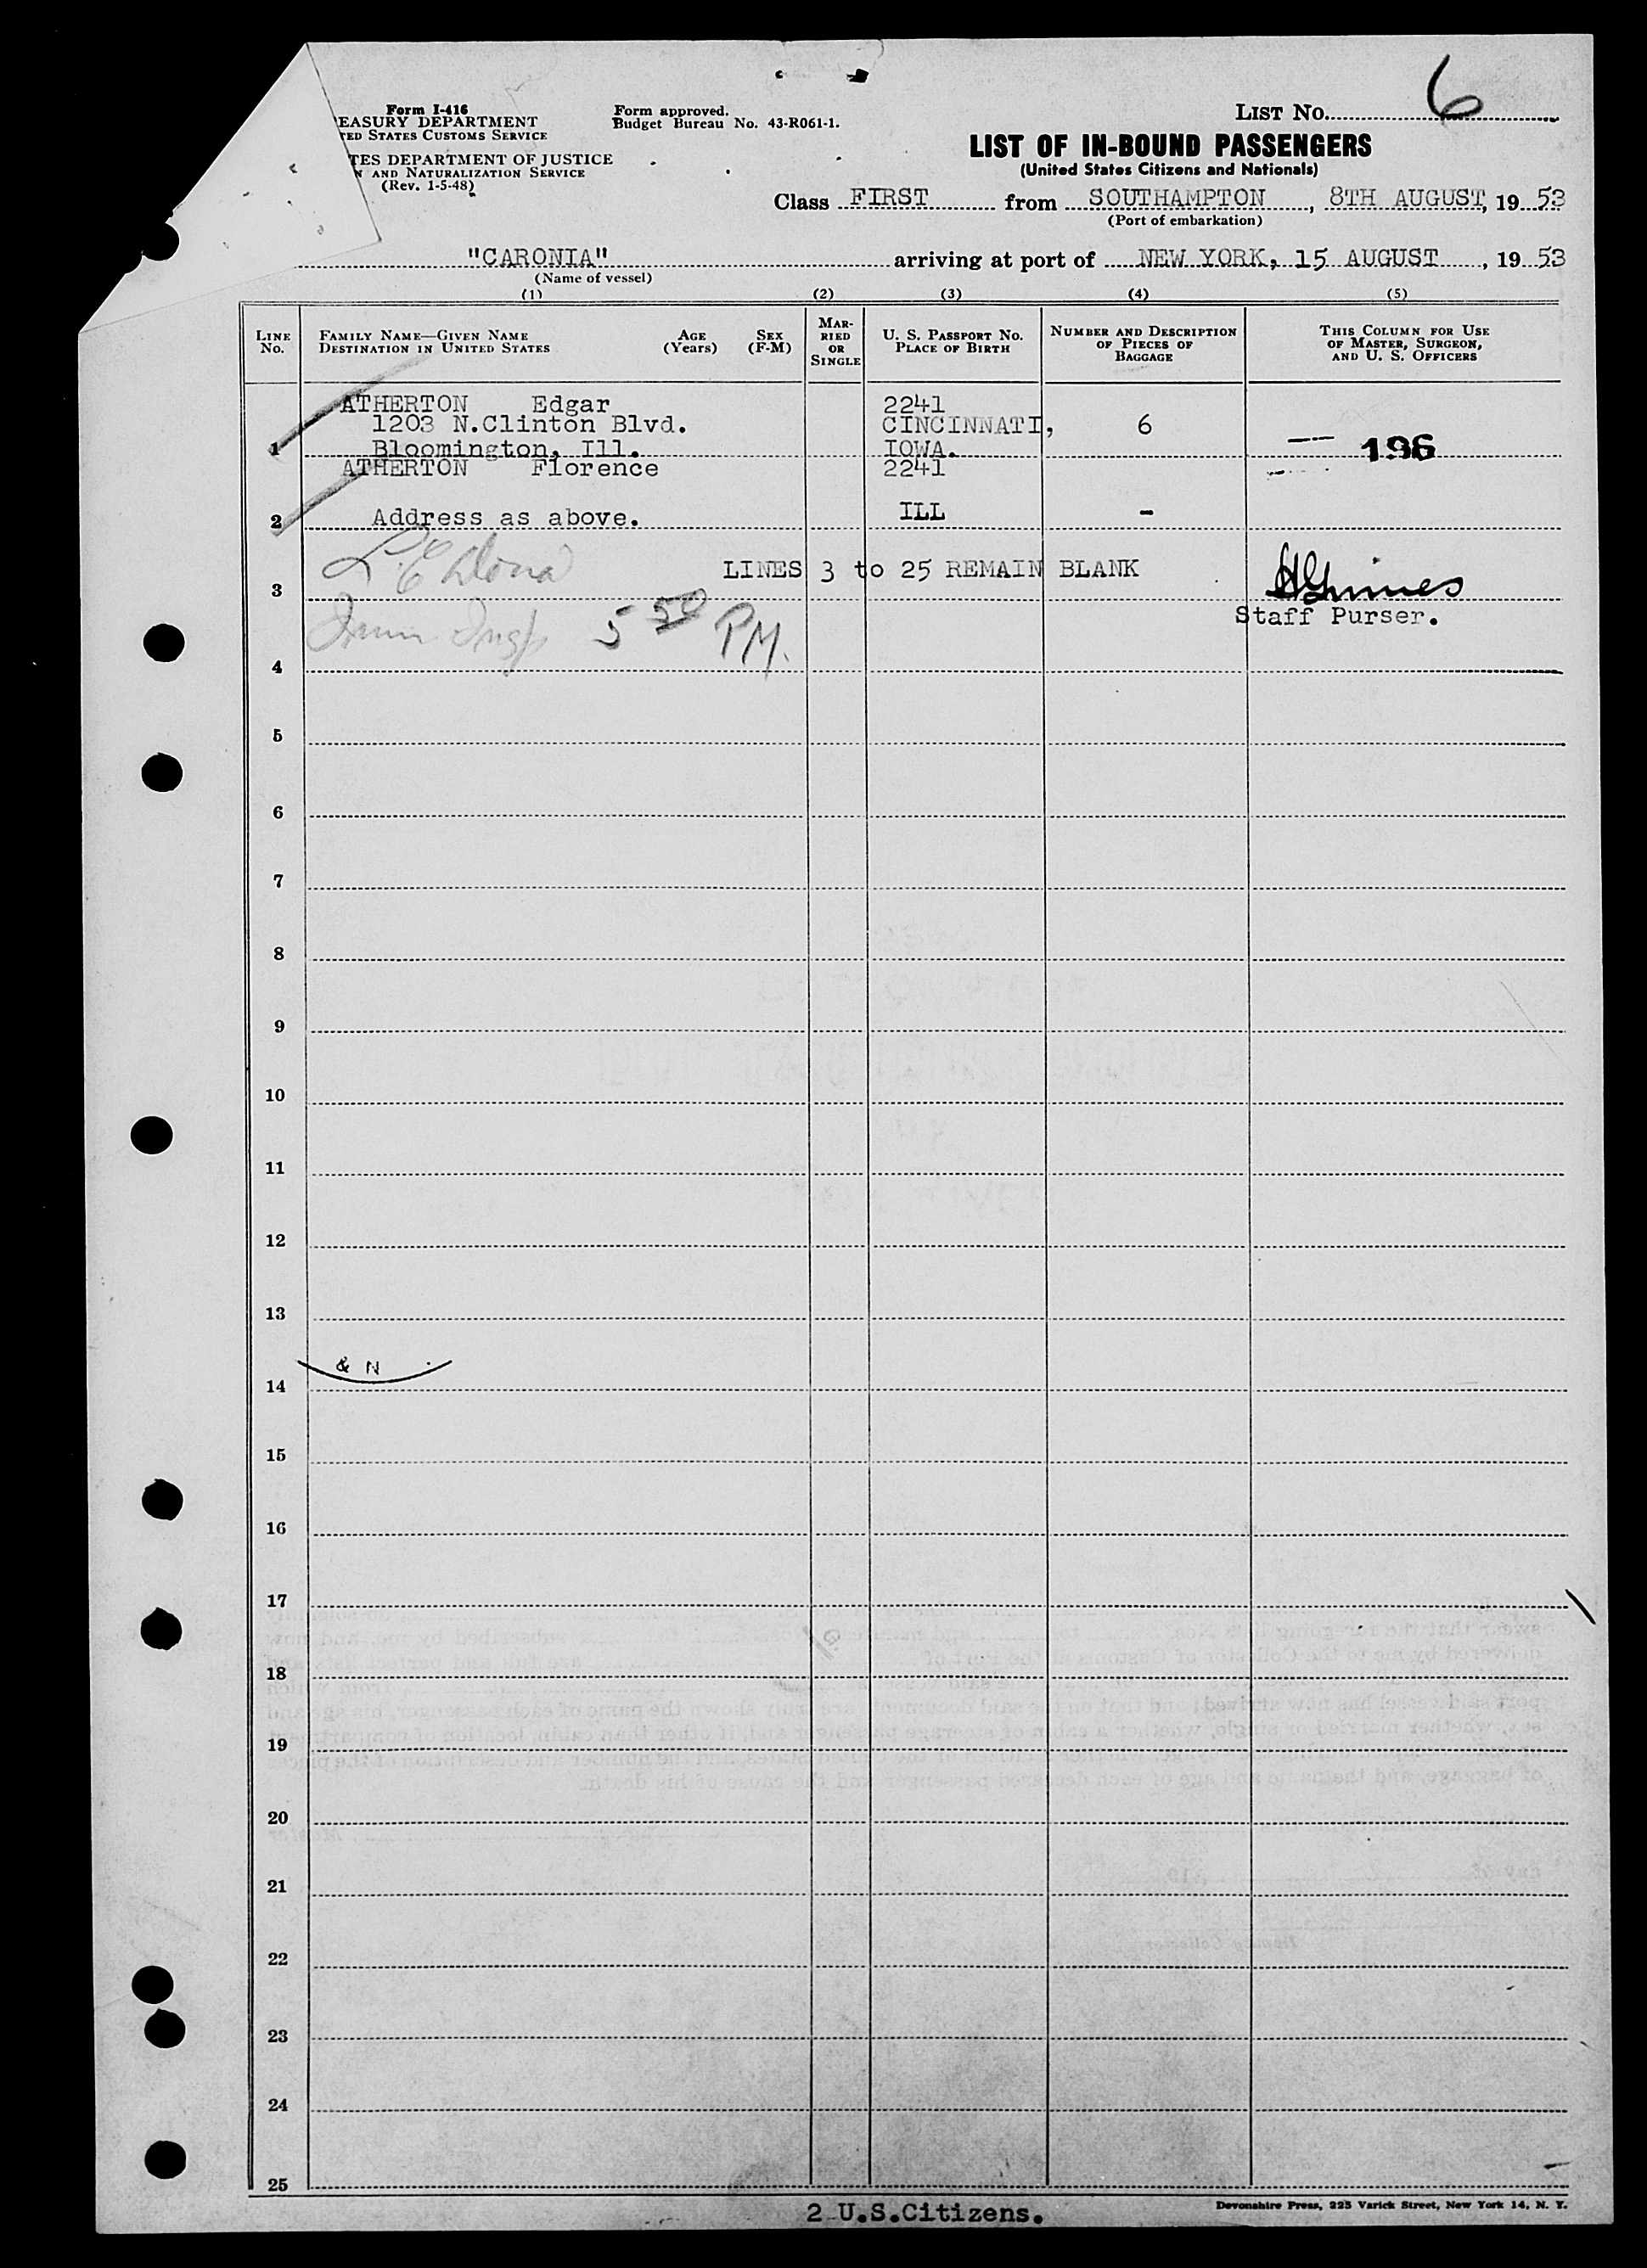 Form I-416
EASURY DEPARTMENT
TED STATES CUSTOMS SERVICE
TES DEPARTMENT OF JUSTICE
N AND NATURALIZATION SERVICE
(Rev. 1-5-48)
Form approved.
Budget Bureau No. 43-R061-1.
LIST No. 6
LIST OF IN-BOUND PASSENGERS
(United States Citizens and Nationals)
Class FIRST from SOUTHAMPTON, 8TH AUGUST, 19 53
(Port of embarkation)
"CARONIA" arriving at port of NEW YORK, 15 AUGUST, 19 53
(Name of vessel)
(1) (2) (3) (4) (5)
LINE No.
FAMILY NAME—GIVEN NAME
DESTINATION IN UNITED STATES
AGE (Years)
SEX (F-M)
MAR-RIED OR SINGLE
U. S. PASSPORT NO.
PLACE OF BIRTH
NUMBER AND DESCRIPTION
OF PIECES OF
BAGGAGE
THIS COLUMN FOR USE
OF MASTER, SURGEON,
AND U. S. OFFICERS
ATHERTON Edgar 2241
1203 N.Clinton Blvd. CINCINNATI, 6
1 Bloomington, Ill. IOWA. 196
ATHERTON Florence 2241
2 Address as above. ILL -
LINES 3 to 25 REMAIN BLANK
3
Staff Purser.
Imm Insp 5 50 PM.
4
5
6
7
8
9
10
11
12
13
& N
14
15
16
17
18
19
20
21
22
23
24
25
2 U.S.Citizens.
Devonshire Press, 225 Varick Street, New York 14, N. Y.